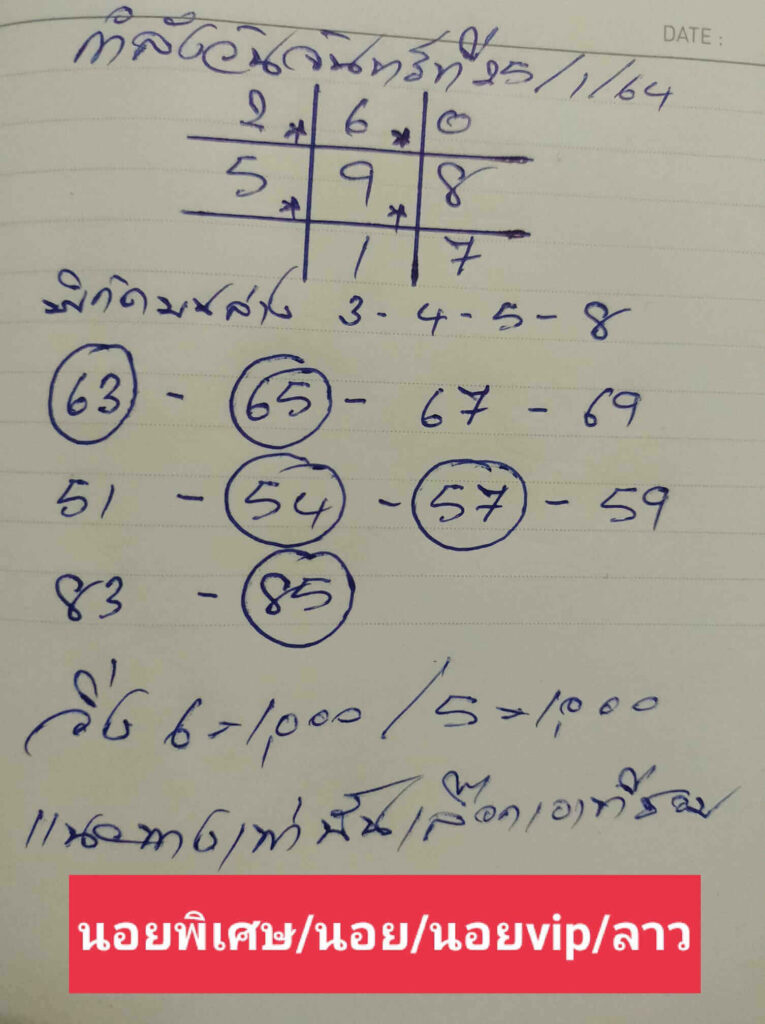 DATE :
กำลังวันจันทร์ที่ 25/1/64
2 * 6 * 0
5 * 9 * 8
1 7
พิกัดบนล่าง 3 - 4 - 5 - 8
63 - 65 - 67 - 69
51 - 54 - 57 - 59
83 - 85
วิ่ง 6 = 1,000 / 5 = 1,000
แนะทางเท่านั้นเลือกเอาที่ชอบ
นอยพิเศษ/นอย/นอยvip/ลาว